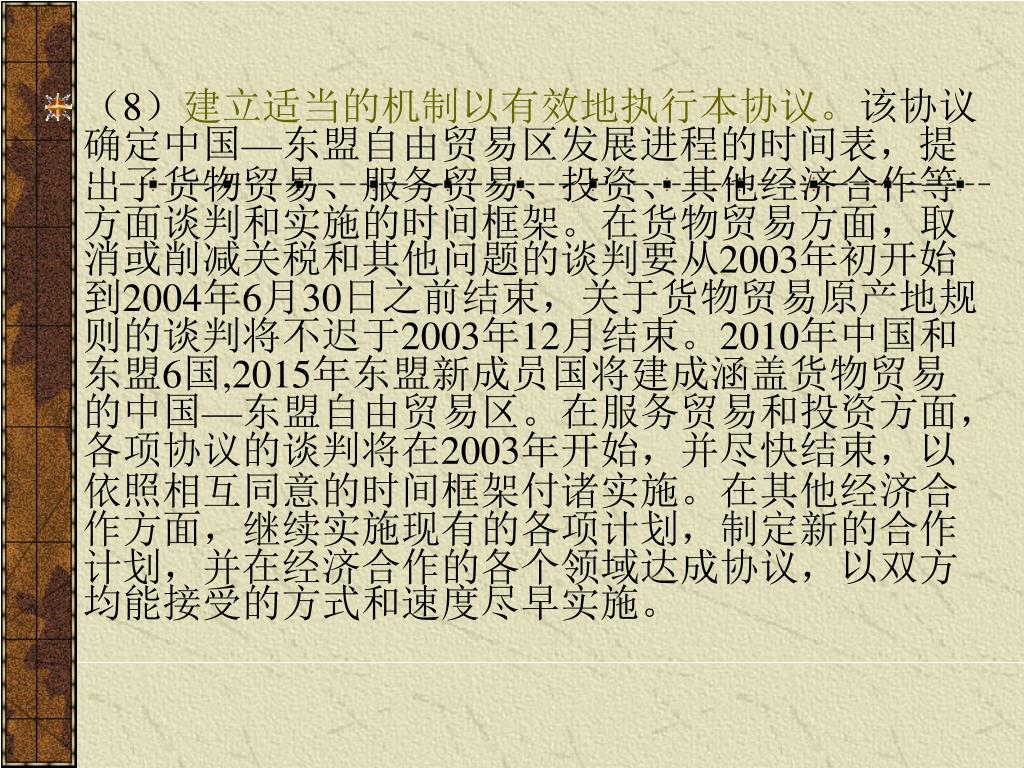 （8）建立适当的机制以有效地执行本协议。该协议
确定中国—东盟自由贸易区发展进程的时间表，提
出了货物贸易、服务贸易、投资、其他经济合作等
方面谈判和实施的时间框架。在货物贸易方面，取
消或削减关税和其他问题的谈判要从2003年初开始
到2004年6月30日之前结束，关于货物贸易原产地规
则的谈判将不迟于2003年12月结束。2010年中国和
东盟6国,2015年东盟新成员国将建成涵盖货物贸易
的中国—东盟自由贸易区。在服务贸易和投资方面，
各项协议的谈判将在2003年开始，并尽快结束，以
依照相互同意的时间框架付诸实施。在其他经济合
作方面，继续实施现有的各项计划，制定新的合作
计划，并在经济合作的各个领域达成协议，以双方
均能接受的方式和速度尽早实施。